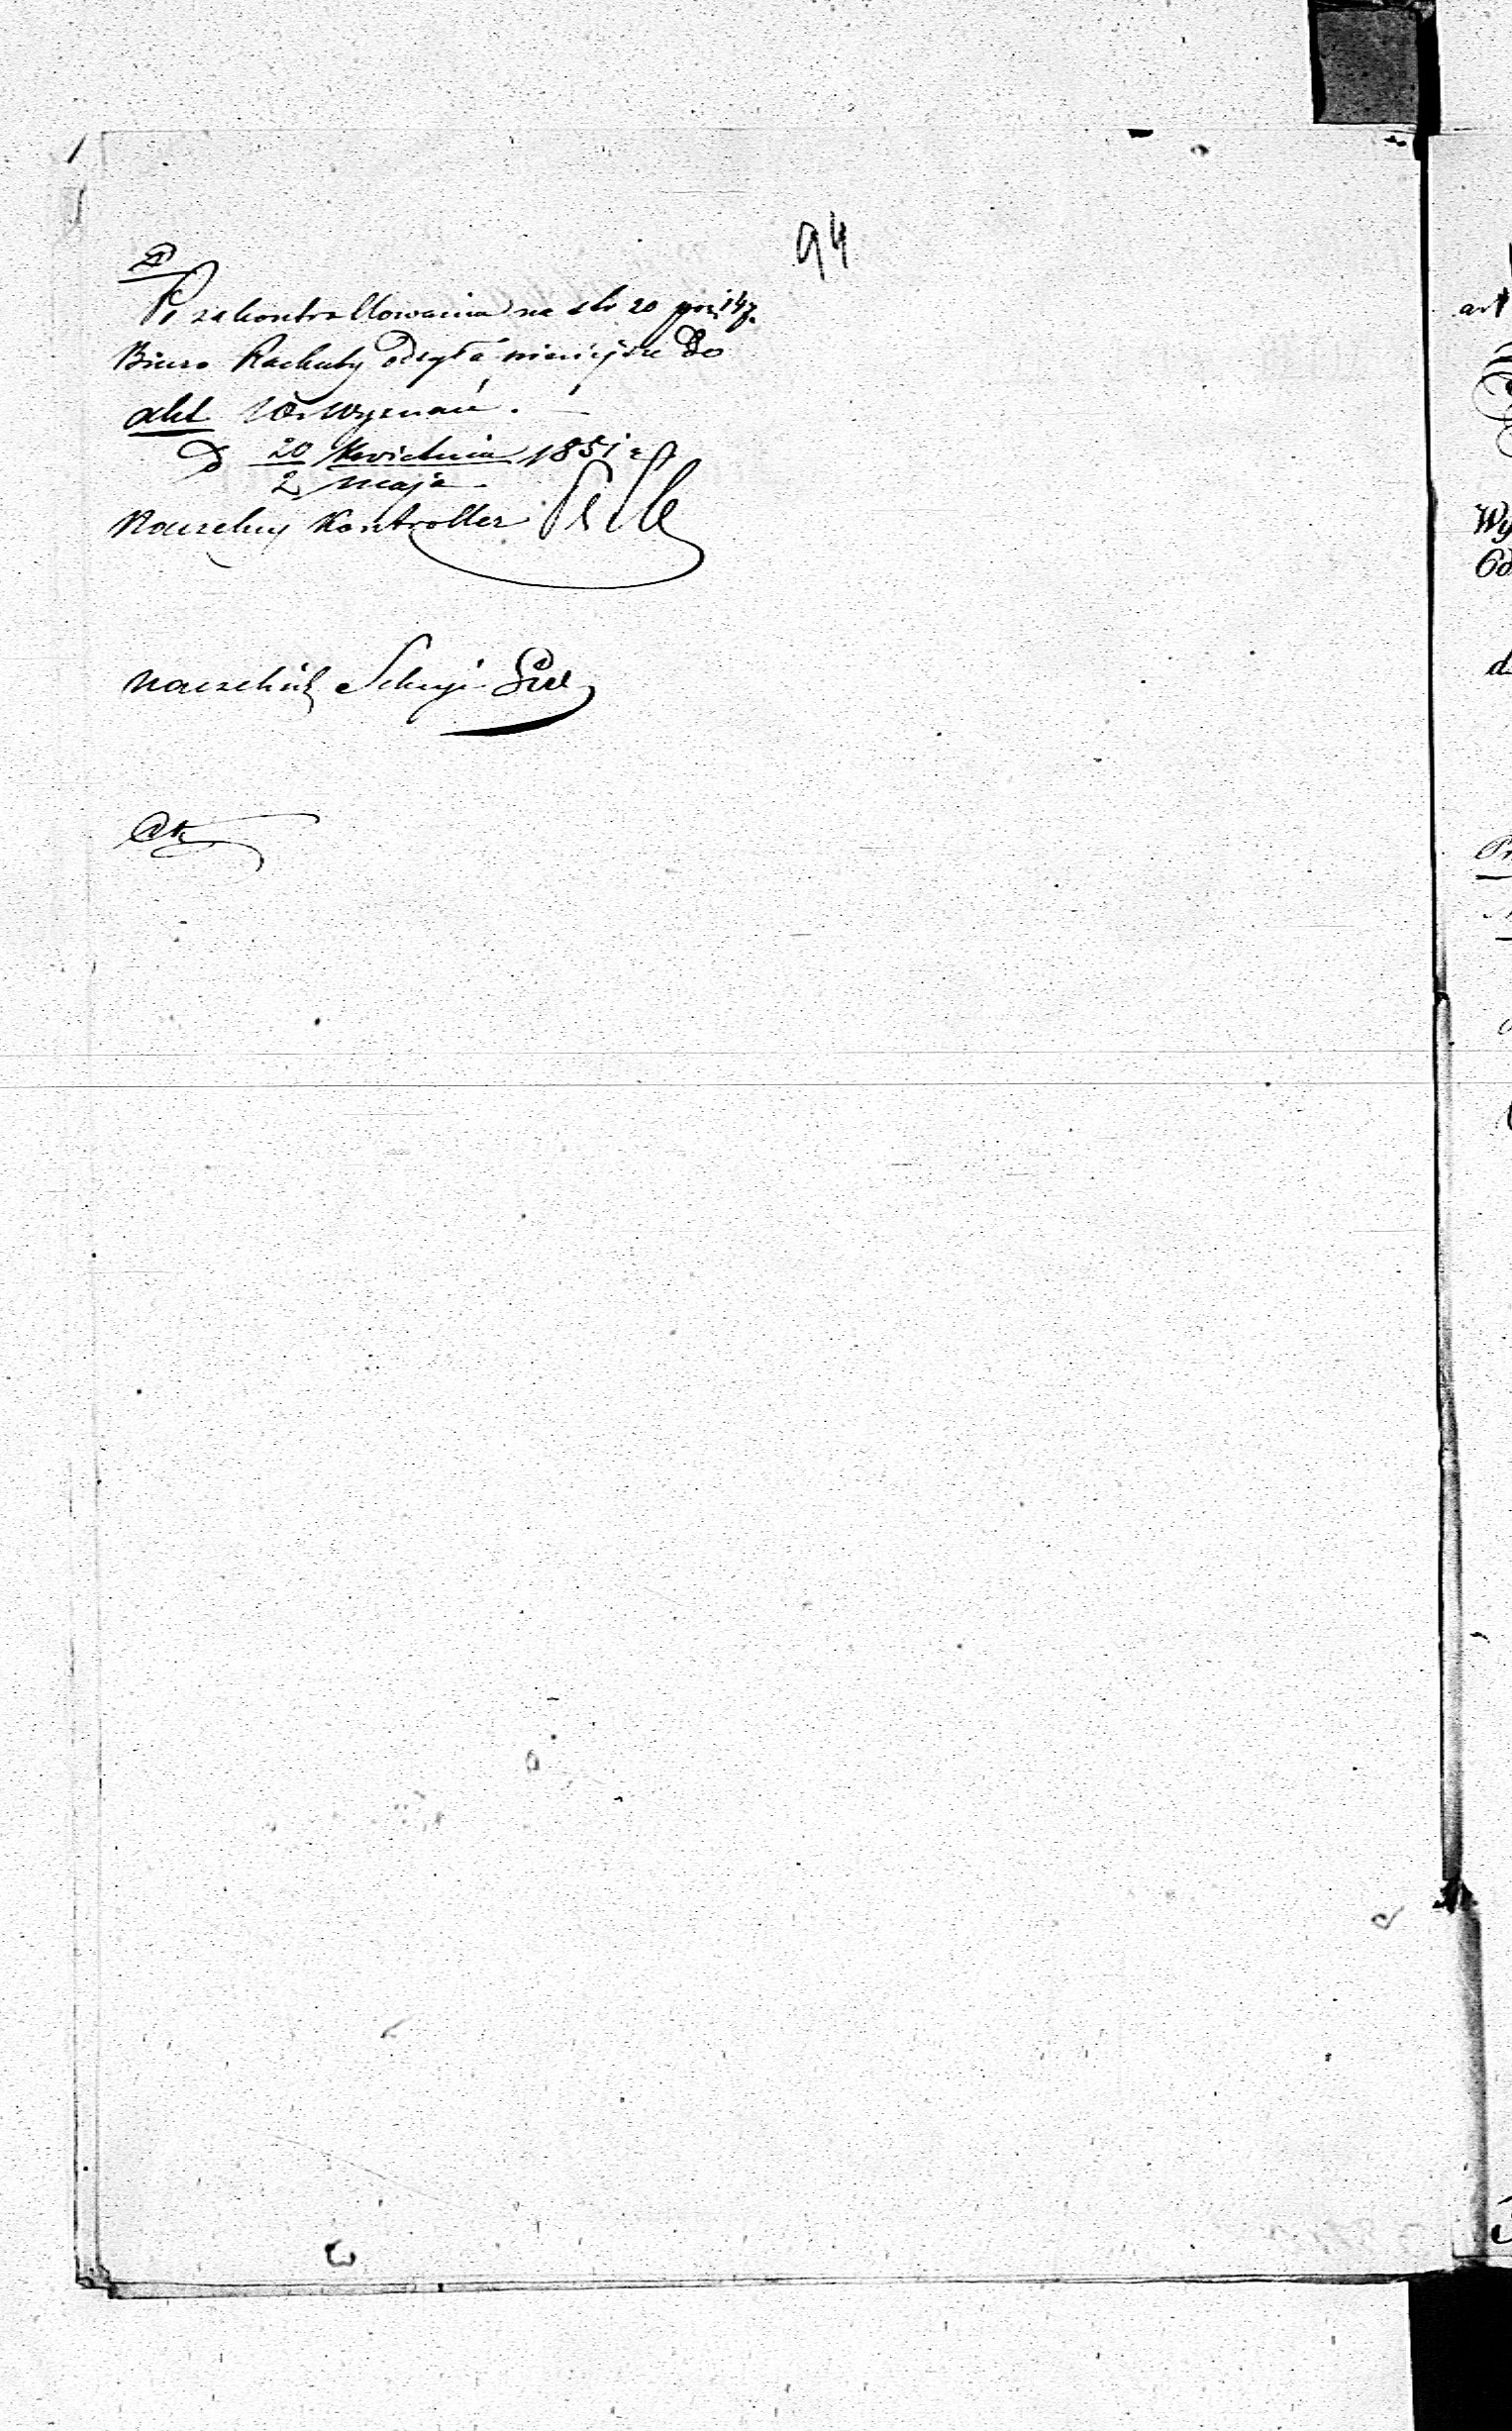 94
Po zakontrollowaniu na str 20 poz 147.
Biuro Rachuby odsyła niniejsze do
akt Wyznań.
D 20 Kwietnia 1851 r
2 maja
Naczelny Kontroller
Naczelnik Sekcyi